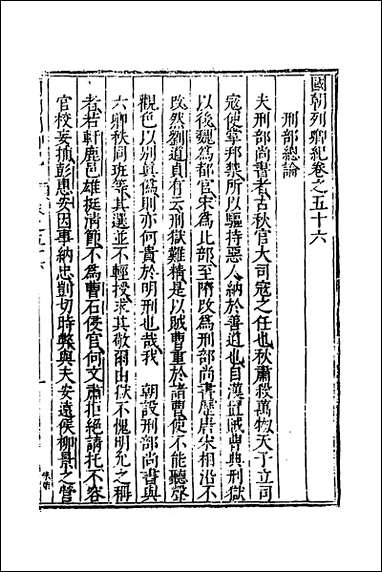 國朝列卿紀卷之五十六
刑部總論
夫刑部尚書者古秋官大司寇之任也秋肅殺萬物天子立司
寇使掌邦禁所以驅持惡人納於善道也自漢置賊曹典刑獄
以後魏爲都官宋爲比部至隋改爲刑部尚書歷唐宋相沿不
改然劉道貞有云刑獄難精是以賊曹重於諸曹使不能聽聲
觀色以別眞僞則亦何貴於明刑也哉我　朝設刑部尚書與
六卿秩同班等其選並不輕授求其敬爾由獄不愧明允之稱
者若軒鹿邑雄挺清節不爲曹石侵官何文肅拒絶請托不容
官校妄摭彭惠安因事納忠剴切時弊與夫安遠侯柳景之營